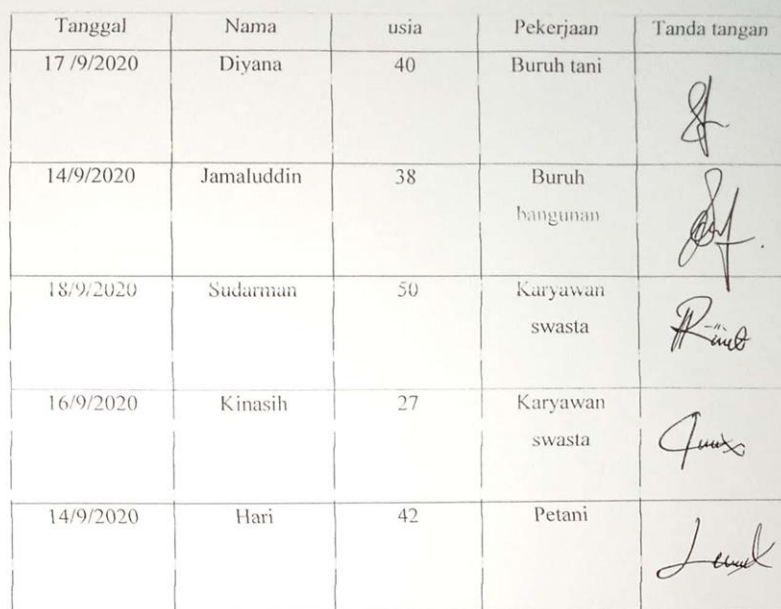 Tanggal Nama usia Pekerjaan Tanda tangan
17 /9/2020 Diyana 40 Buruh tani
14/9/2020 Jamaluddin 38 Buruh
bangunan
18/9/2020 Sudarman 50 Karyawan
swasta
16/9/2020 Kinasih 27 Karyawan
swasta
14/9/2020 Hari 42 Petani